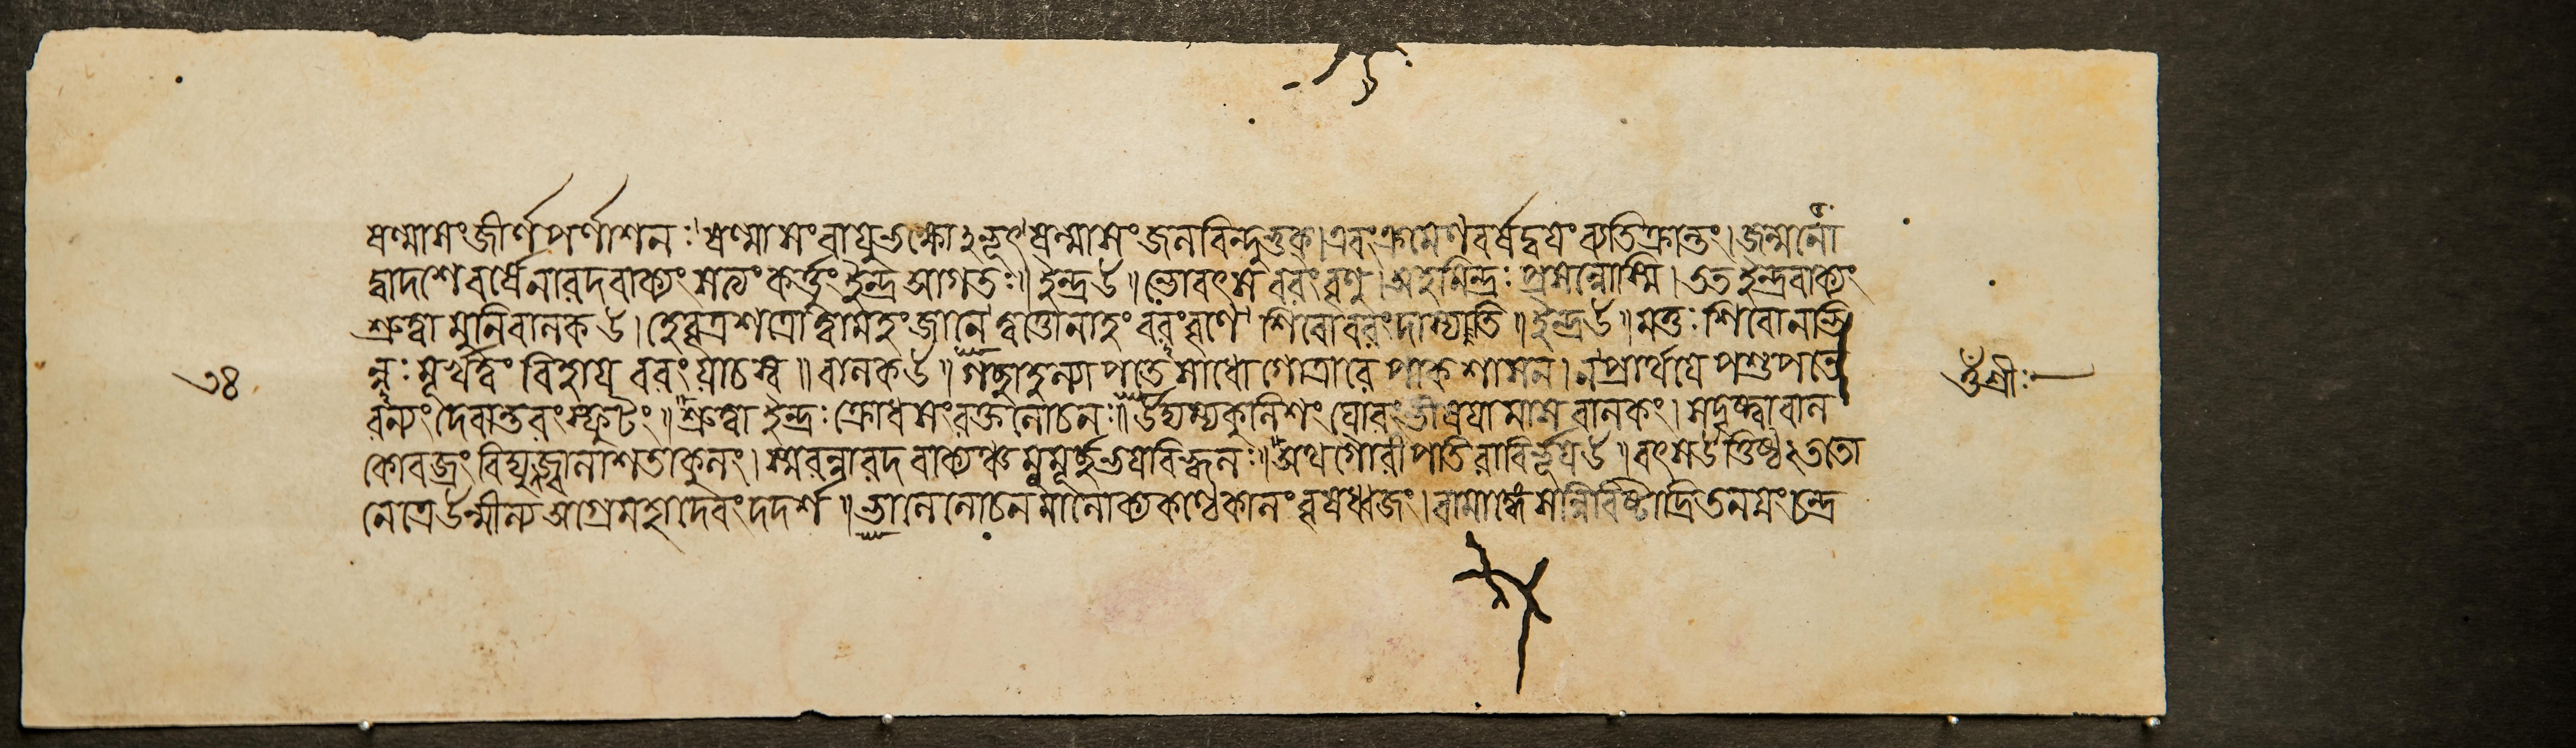 ষণ্মাসং জীর্ণপর্ণাশনঃ ষণ্মাসং বায়ুভক্ষোঽভূৎ ষন্মাসং জলবিন্দুভুক্। এবং ক্রমেণ বর্ষদ্বয়ং ব্যতিক্রান্তং। জন্মনো
দ্বাদশে বর্ষে নারদবাক্যং সত্যং কর্ত্তুং ইন্দ্র আগতঃ॥ ইন্দ্র উ॥ ভো বৎস বরং বৃণু। অহমিন্দ্রঃ প্রসন্নোস্মি। তত ইন্দ্রবাক্যং
শ্রুত্বা মুনিবালক উ। হে বৃত্রশত্রো ত্বামহং জানে ত্বাত্তোনাহং বরং বৃণে শিবো বরং দাস্যতি॥ ইন্দ্র উ॥ মত্তঃ শিবো নাস্তি
৩৪ ন্নঃ মূর্খত্বং বিহায় বরং যাচস্ব॥ বালক উ॥ গচ্ছাহল্যাপতে সাধো গোত্রারে পাকশাসন। ন প্রার্থয়ে পশুপতে ওঁ শ্রীঃ
রন্যং দেবান্তরং স্ফুটং॥ শ্রুত্বা ইন্দ্রঃ ক্রোধসংরক্তলোচনঃ॥ উদ্যম্য কুলিশং ঘোরং ভীষয়ামাস বালকং। স দৃষ্ট্বা বাল
কো বজ্রং বিদ্যুজ্জ্বালাশতাকুলং। স্মরন্নারদবাক্যঞ্চ মুমূর্চ্ছ ভয়বিহ্বলঃ॥ অথ গৌরীপতিরাবির্ভূয় উ॥ বৎস উত্তিষ্ঠ২ ততো
নেত্রে উন্মীল্য অগ্রে মহাদেবং দদর্শ॥ ভালে লোচনমালোক্য কণ্ঠে কালং বৃষধ্বজং। বামাঙ্গে সন্নিবিষ্টাদ্রিতনয়ং চন্দ্র